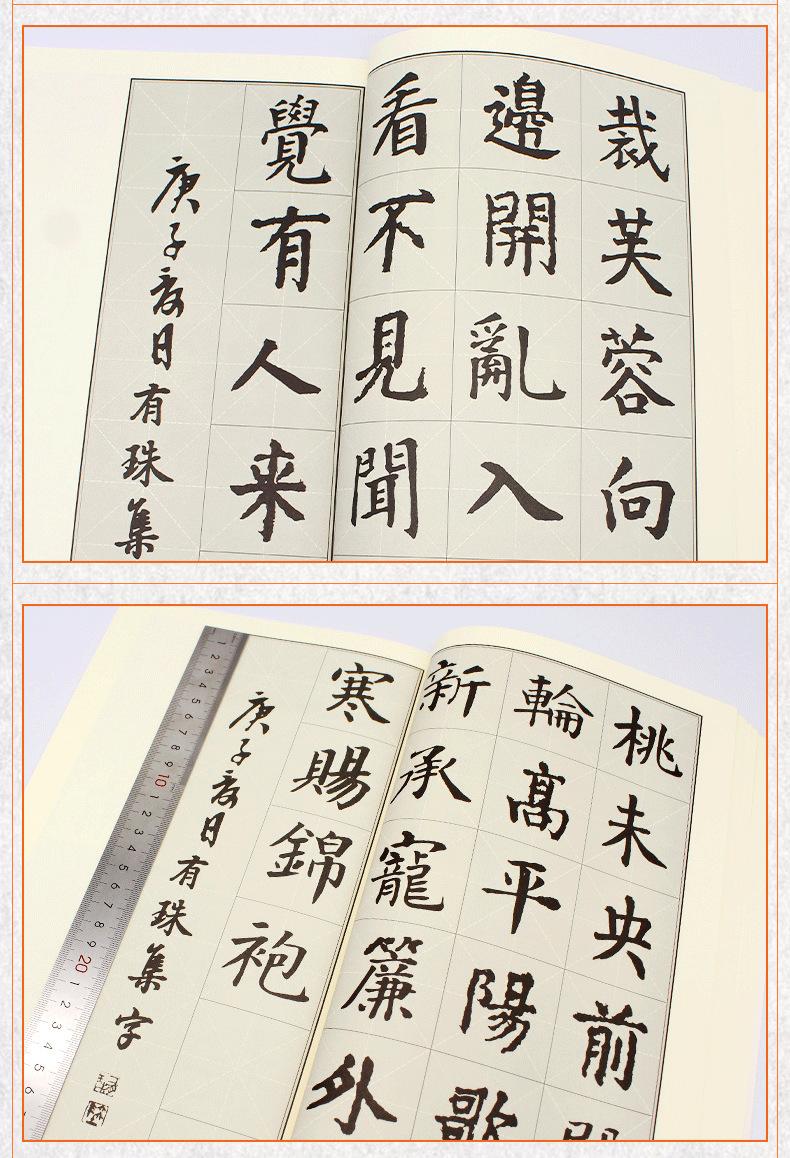 裁芙蓉向
邊開亂入
看不見聞
覺有人来
庚子夏日有珠集
桃未央前
輪髙平陽歌
新承寵簾外
寒賜錦袍
庚子夏日有珠集字
1 2 3 4 5 6 7 8 9 10 1 2 3 4 5 6 7 8 9 20 1 2 3 4 5 6